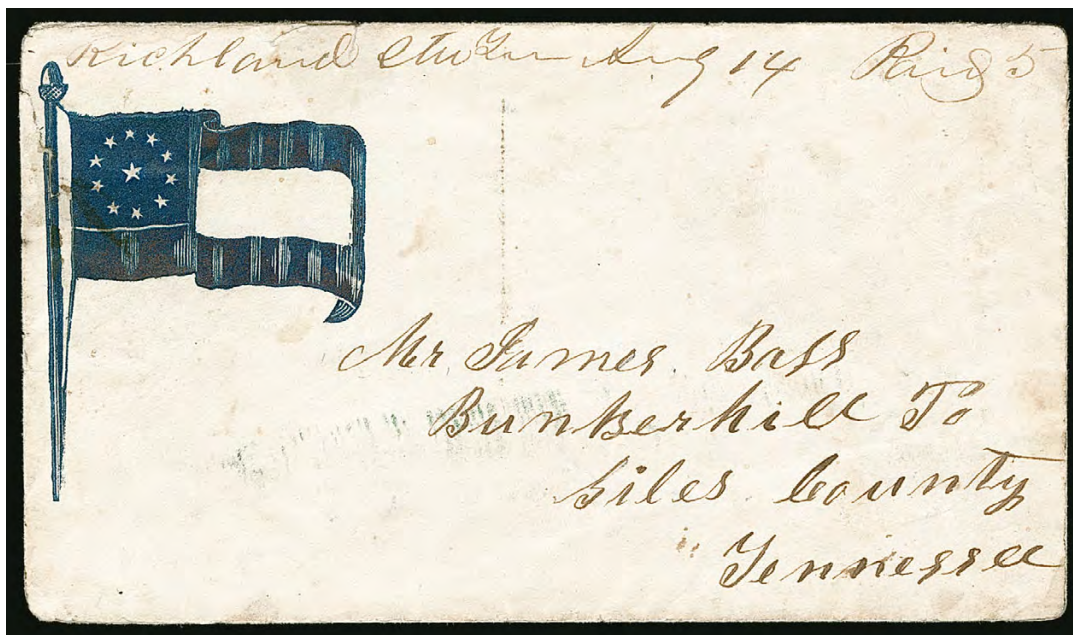 Richland Sta Ten Aug 14 Paid 5
Mr James Bass
Bunkerhill Po
Giles County
Tennessee